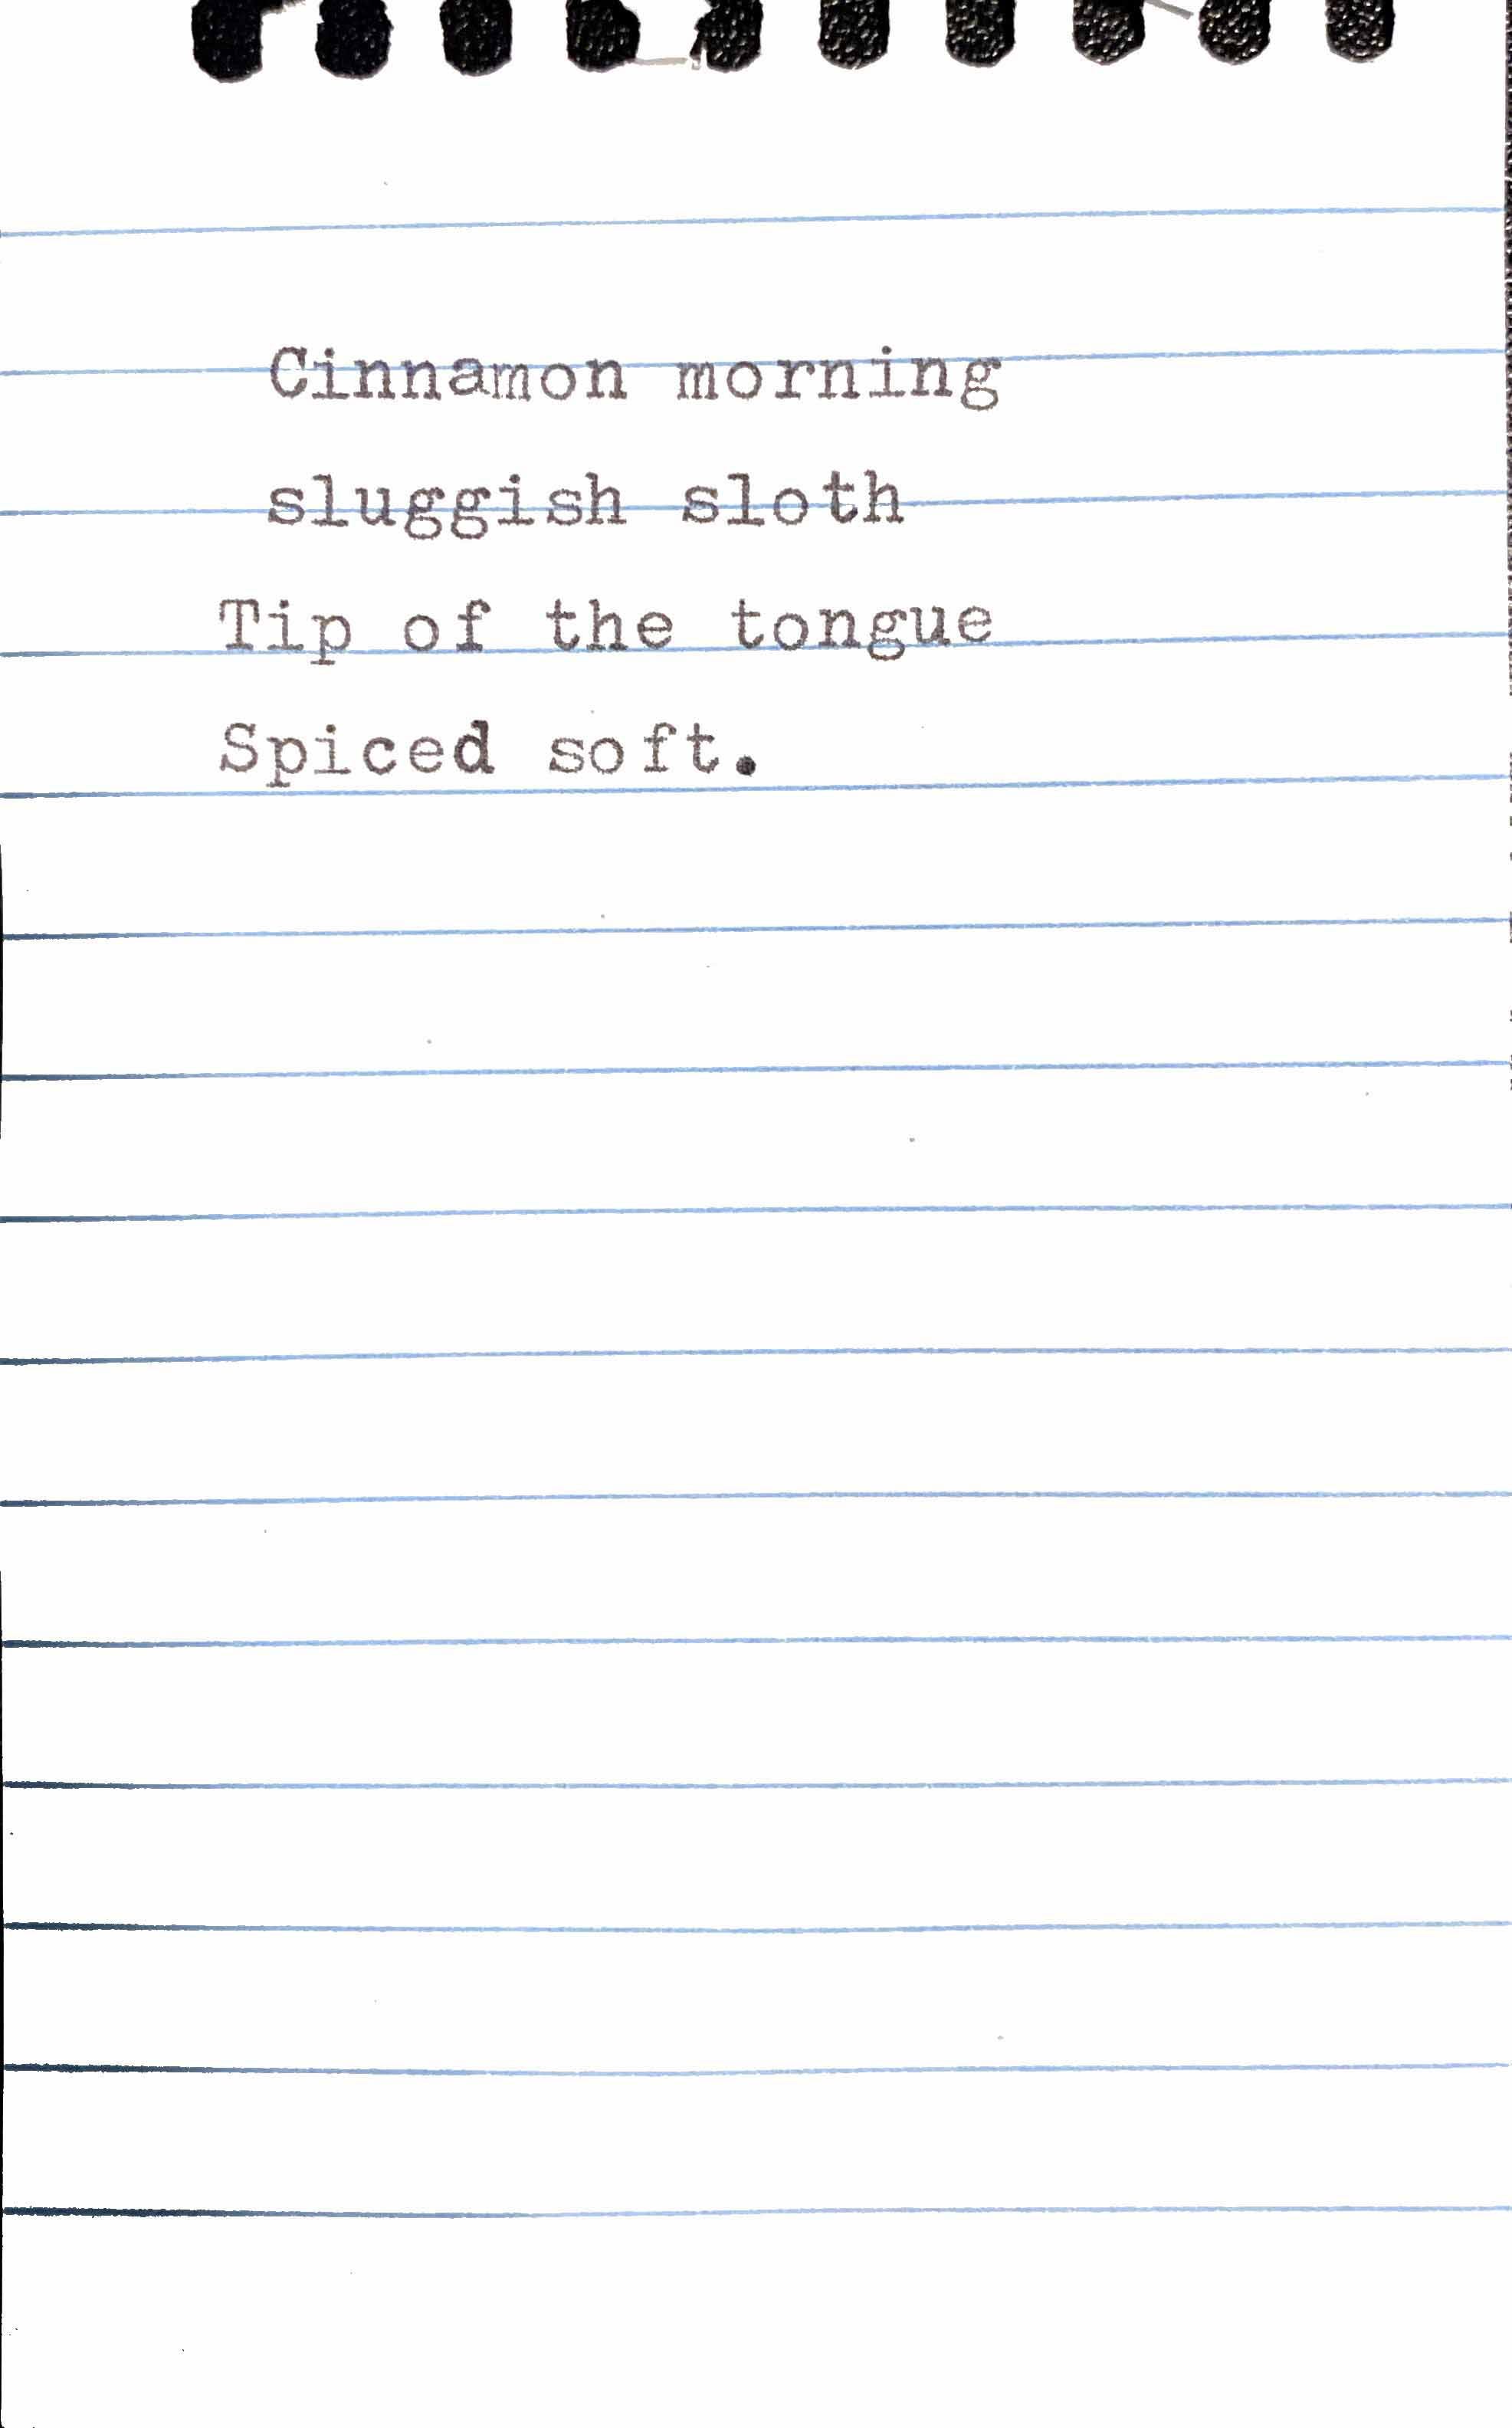 Cinnamon morning
sluggish sloth
Tip of the tongue
Spiced soft.